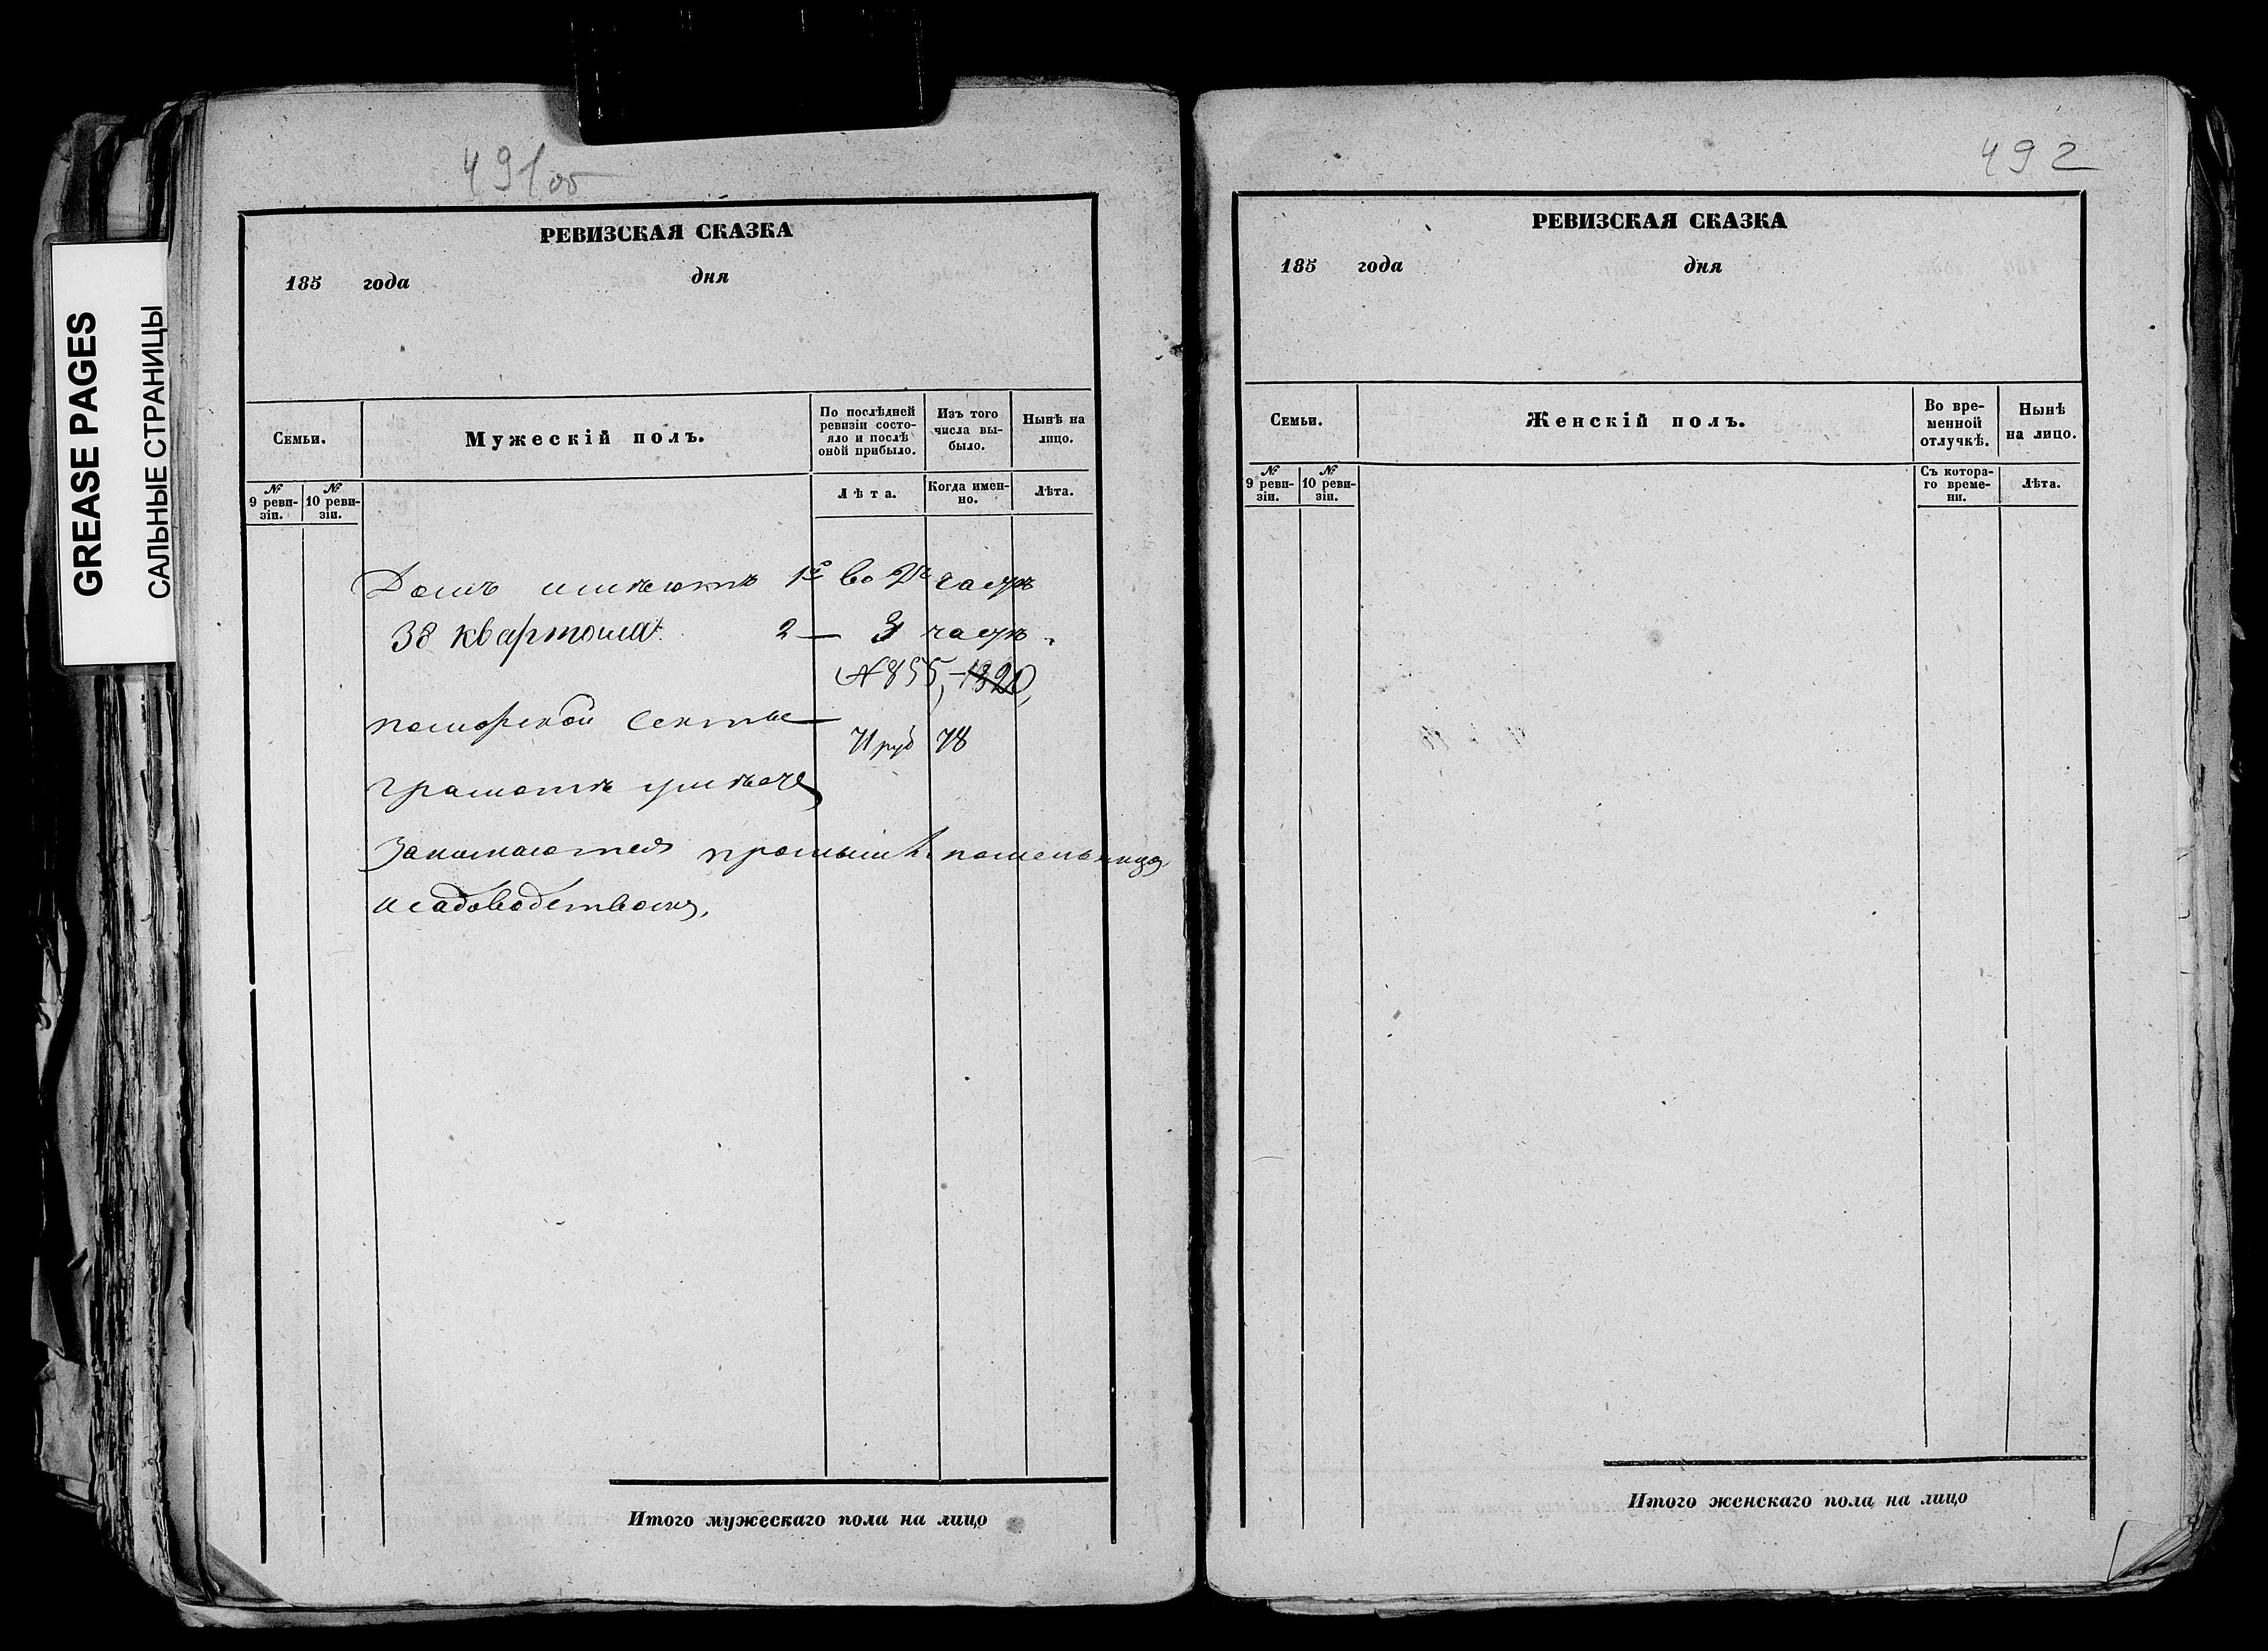 GREASE PAGES
САЛЬНЫЕ СТРАНИЦЫ
491об
РЕВИЗСКАЯ СКАЗКА
185 года дня
Семьи.
Мужескій полъ.
По послѣдней ревизіи состо-
яло и послѣ
оной прибыло.
Изъ того
числа вы-
было.
Нынѣ на
лицо.
№
9 реви-
зіи.
№
10 реви-
зіи.
Лѣта.
Когда имен-
но.
Лѣта.
Домъ имѣютъ 1й во 2й части
38 квартала 2 — 3 части.
№ 855, 1820,
поморской секты —
71 руб 78
Грамотѣ умѣетъ
Занимаются
и садоводствомъ,
Итого мужескаго пола на лицо
492
РЕВИЗСКАЯ СКАЗКА
185 года дня
Семьи.
Женскій полъ.
Во вре-
менной
отлучкѣ.
Нынѣ
на лицо.
№
9 реви-
зіи.
№
10 реви-
зіи.
Съ котора-
го време-
ни.
Лѣта.
Итого женскаго пола на лицо